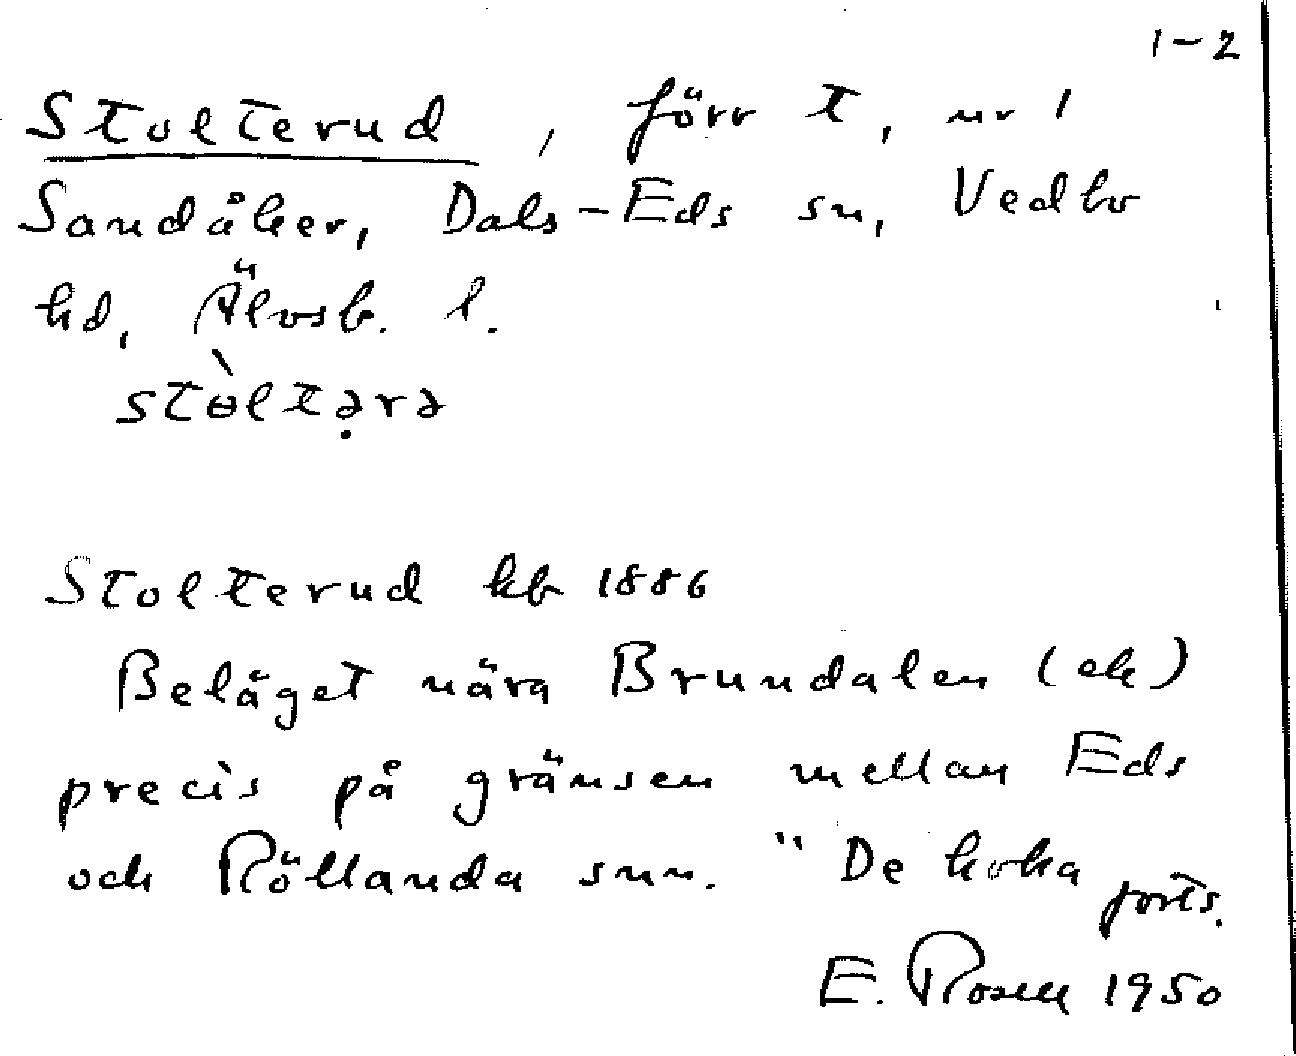 1-2
Stolterud, förr t, ur 1
Sandåker, Dals-Eds sn, Vedbo
hd, Älvsb. l.
stɵ̀ltə̣rə
Stolterud kb 1886
Beläget nära Brundalen (ek)
precis på gränsen mellan Eds
och Rölanda snr. "De koka
forts.
E. Rosell 1950